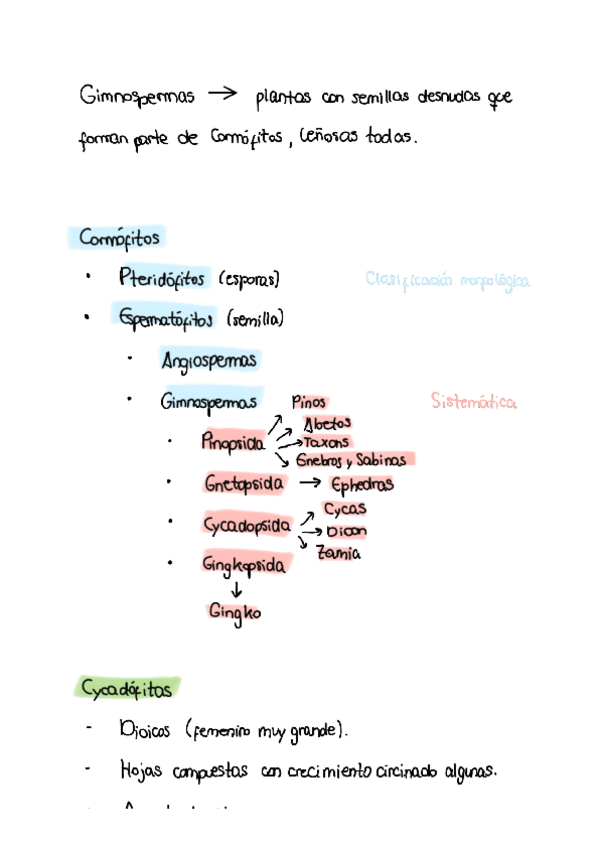 Gimnospermas → plantas con semillas desnudas que
forman parte de Cormófitos, leñosas todas.
Cormófitos
• Pteridófitos (esporas)
Clasificación morfológica
• Espermatófitos (semilla)
• Angiospermas
• Gimnospermas
Sistemática
• Pinopsida → Pinos
→ Abetos
→ Taxons
→ Enebros y Sabinas
• Gnetopsida → Ephedras
• Cycadopsida → Cycas
→ Dioon
→ Zamia
• Gingkopsida
↓
Gingko
Cycadófitos
- Dioicos (femenino muy grande).
- Hojas compuestas con crecimiento circinado algunas.